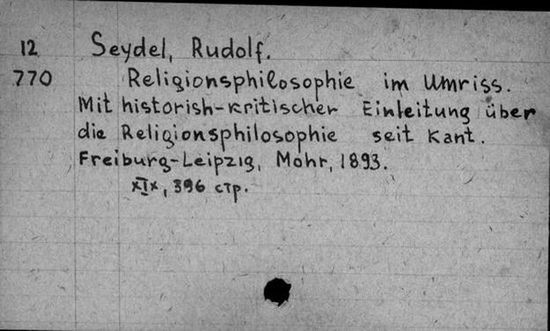 12 Seydel, Rudolf.
770 Religionsphilosophie im Umriss.
Mit historish-kritischer Einleitung über
die Religionsphilosophie seit Kant.
Freiburg-Leipzig, Mohr, 1893.
XIX, 396 стр.